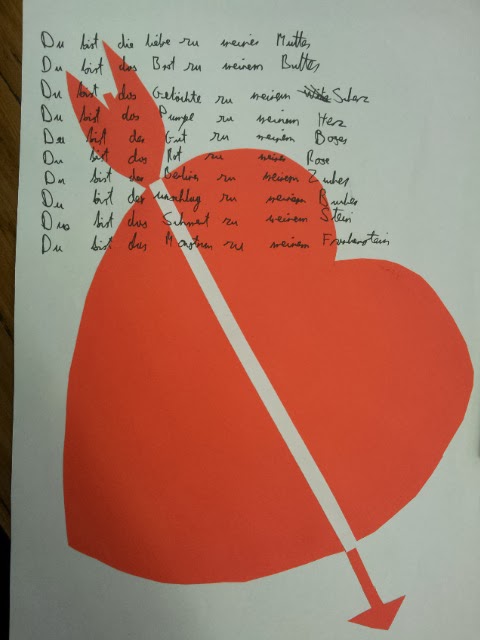 Du bist die liebe zu meiner Mutter
Du bist das Brot zu meinem Butter
Du bist das Gelächte zu meinem Scherz
Du bist das Pumpe zu meinem Herz
Du bist der Gut zu meinem Böses
Du bist das Rot zu meiner Rose
Du bist der Berliner zu meinem Zucker
Du bist der umschlag zu meinem
Du bist das Schwert zu meinem Stein
Du bist das Monstrum zu meinem Frankenstein